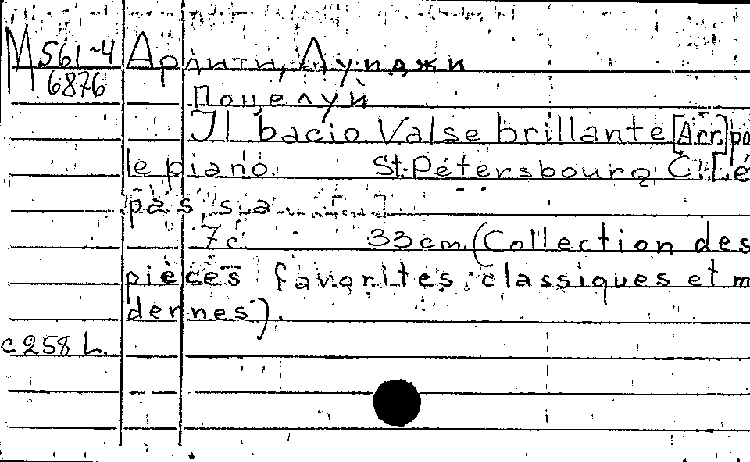 М 561-4 Ардити, Луиджи
6876 Поцелуй
Il bacio Valse brillante [Arr.] po
le piano. St. Petersbourg, C.
pas,
7 c. 33 cm. (Collection des
pièces favorites, classiques et m
dernes).
c 258 L.